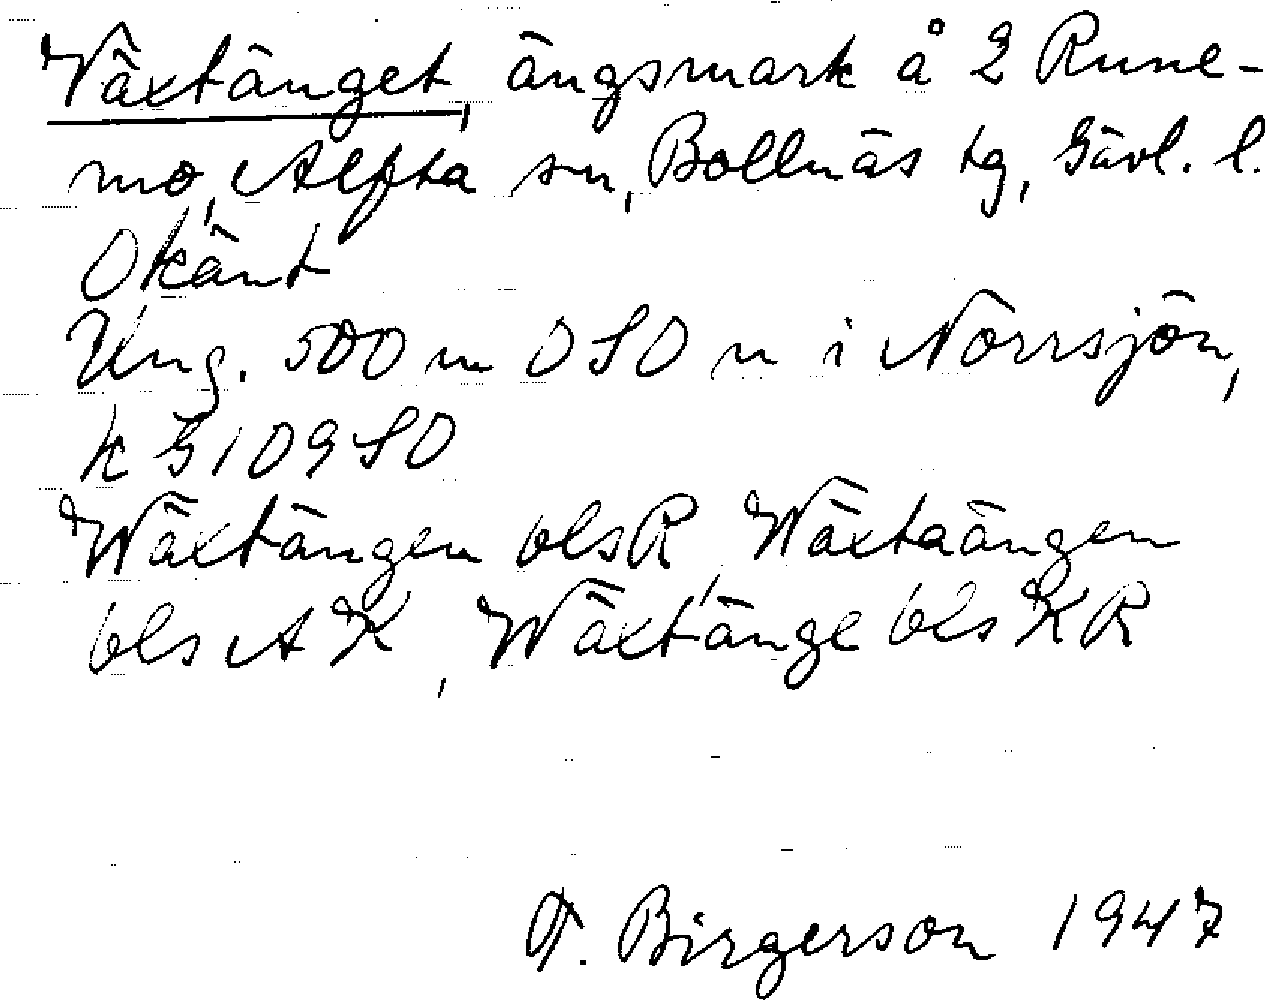 Växtänget, ängsmark å 2 Rune-
mo, Alfta sn, Bollnäs tg, Gävl. l.
Okänt
Ung. 500 m OSO n i Norrsjön,
k G109SO
Wäxtängen bls R Wäxtaängen
bls AK, Wäxtänge bls KR
T. Birgerson 1947